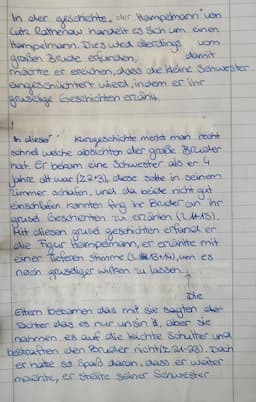 In der geschichte „der Hampelmann" von
Lutz Rathenow handelt es sich um einen
Hampelmann. Dies wird allerdings vom
großen Bruder erfunden, damit
möchte er erreichen, dass die kleine Schwester
eingeschüchtert wird, indem er ihr
gruselige Geschichten erzählt.
In dieser Kurzgeschichte merkt man recht
schnell welche absichten der große Bruder
hat. Er bekam eine Schwester als er 4
Jahre alt war (Z.2+3), diese sollte in seinem
Zimmer schlafen, und da beide nicht gut
einschlafen konnten fing ihr Bruder an ihr
grusel Geschichten zu erzählen
Mit diesen grusel geschichten erfand er
die Figur Hampelmann, er erzählte mit
einer tieferen stimme um es
noch gruseliger wirken zu lassen.
Die
Eltern bekamen das mit sie sagten der
Tochter das es nur unsin is, aber sie
nahmen es auf die leichte Schulter und
bestraften den Bruder nicht (Z.21-23). Doch
er hatte so Spaß daran, dass er weiter
machte, er stellte seiner Schwester